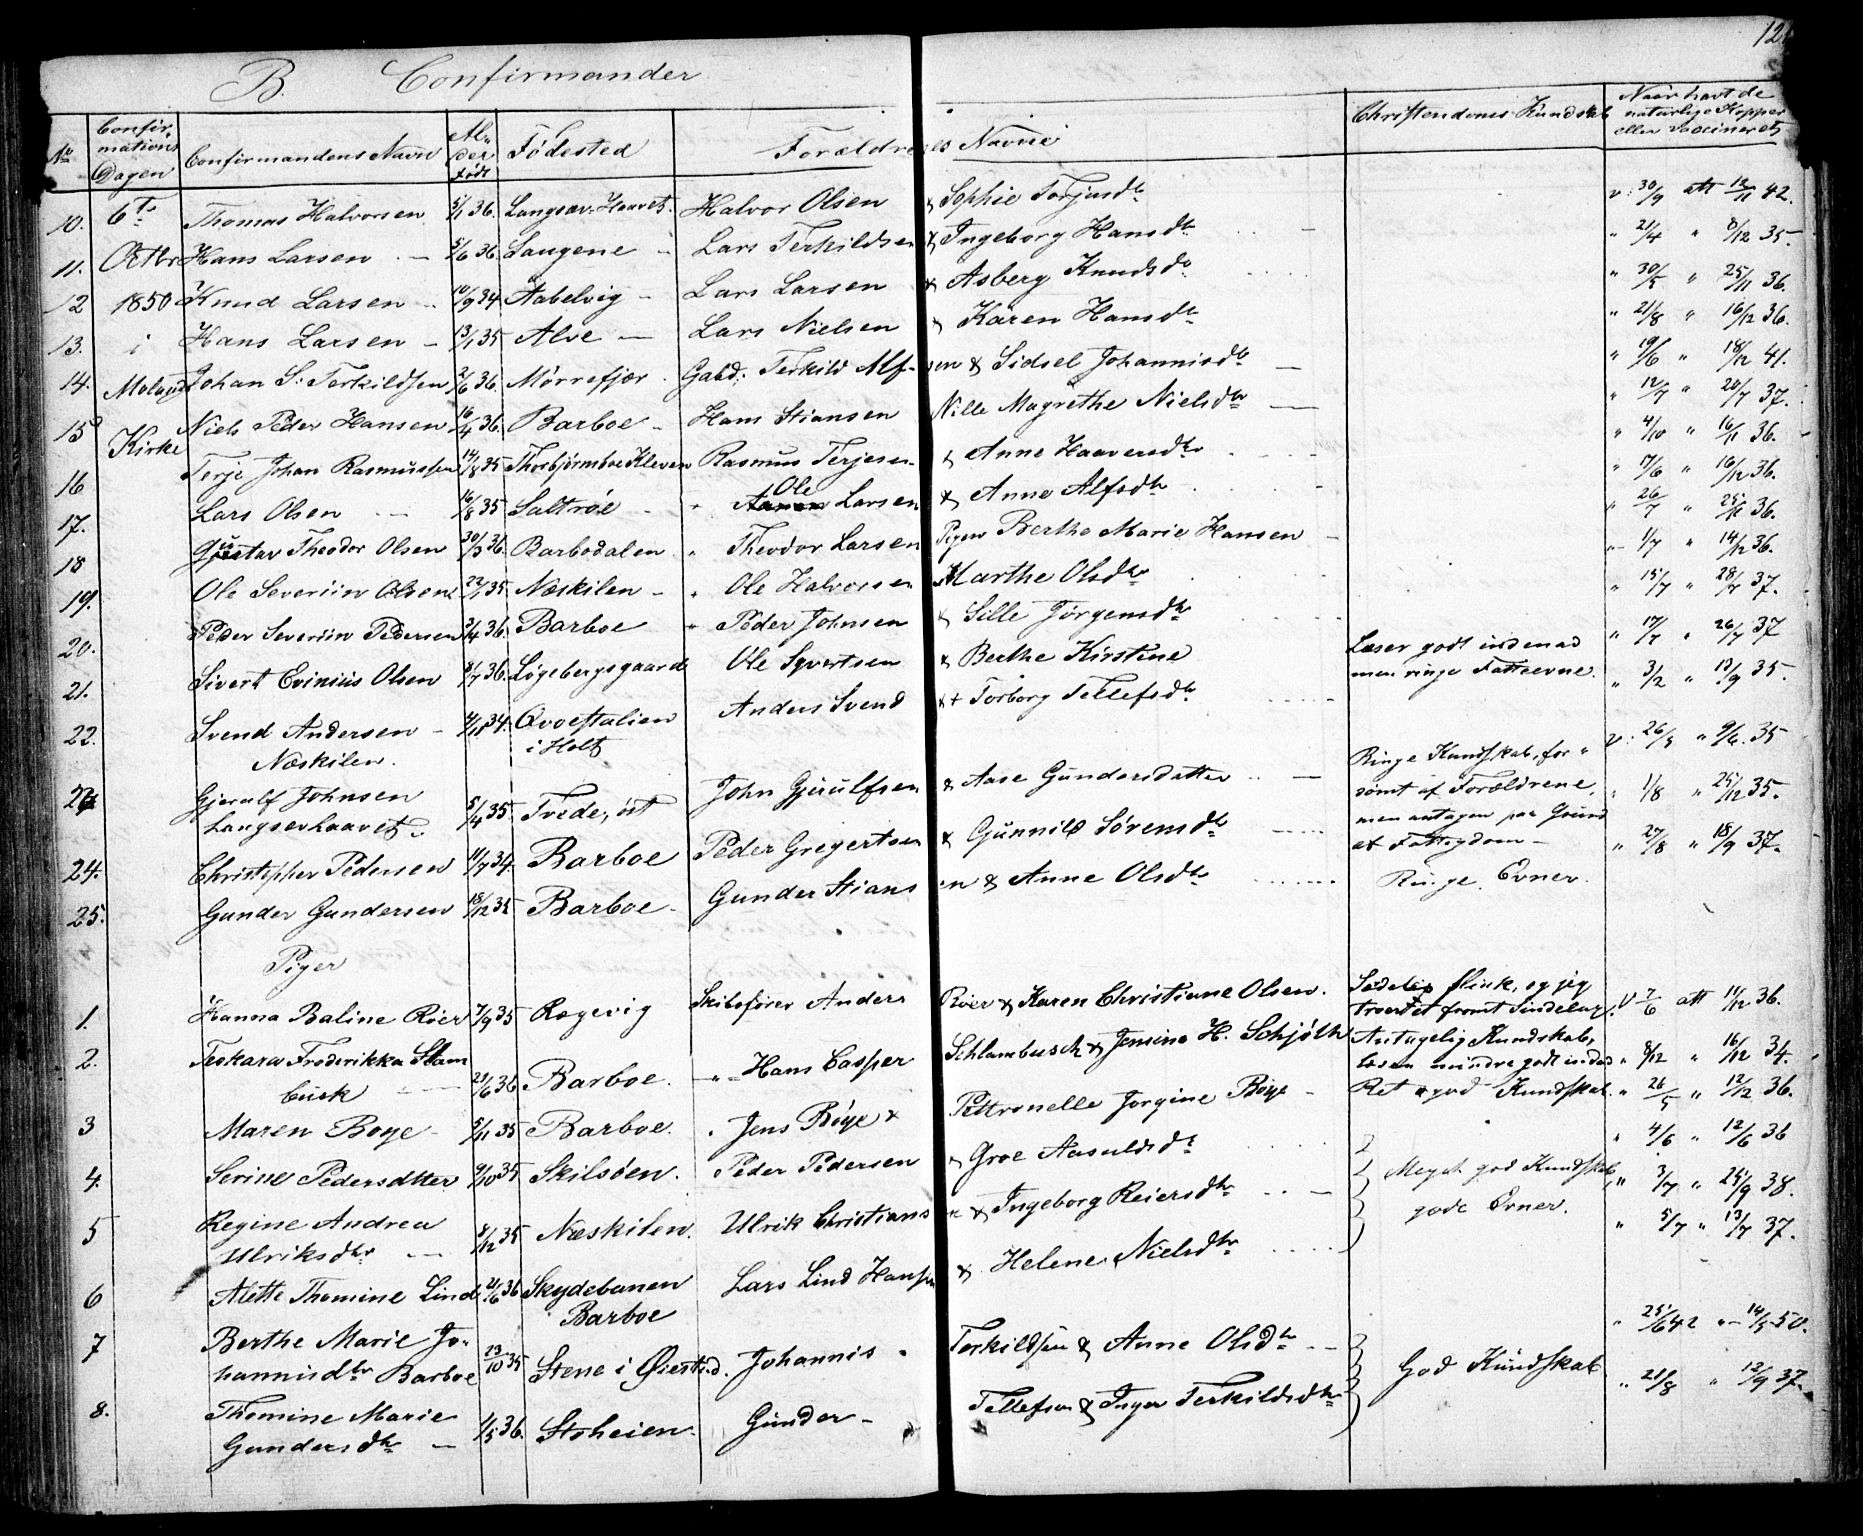 12
B. Confirmander
No Confirmations Dagen Confirmandens Navn Alder Født Fødested Forældrenes Navne Christendoms Kundskab Naar havt de naturlige Kopper eller vaccineret
10. 6te Thomas Halvorsen 5/1 36. Langsæv. Haavet. Halvor Olsen & Sophie Torjusdtr v: 30/9 att 12/11 42.
11. Octbr Hans Larsen 5/6 36 Saugene Lars Terkildsen & Ingeborg Hansdtr " 21/4 " 8/12 35.
12 1850 Knud Larsen 10/9 34 Aabelvig Lars Larsen & Asberg Knudsdtr " 30/5 " 25/11 36.
13. i Hans Larsen 13/1 35 Alve Lars Nielsen & Karen Hansdtr " 21/8 " 16/12 36.
14. Moland Johan S: Terkildsen 2/6 36. Mørrefjær. Gabd: Terkild Alfsen & Sidsel Johannisdtr " 19/6 " 18/12 41.
15 Kirke Niels Peder Hansen 16/4 36. Barboe Hans Stiansen Nille Magrethe Nielsdtr " 12/7 " 20/7 37.
16 Terje Johan Rasmussen 14/8 35 Thorbjørnsboe Kleven Rasmus Terjesen & Anne Haaversdtr " 4/10 " 16/11 36.
17. Lars Olsen 16/8 35 Saltrøe " Ole Larsen & Anne Alfsdtr " 17/6 " 16/12 36.
18 Gustav Theodor Olsen 30/3 36. Barbodalen " Theodor Larsen Pigen Berthe Marie Hansen " 26/7 " 25/11 36.
19. Ole Severiin Olsen 22/1 35 Næskilen " Ole Halvorsen Marthe Olsdtr " 1/7 " 14/12 36.
20. Peder Severiin Pedersen 3/4 36. Barboe " Peder Johnsen & Sille Jørgensdtr " 15/7 " 28/7 37.
21. Sivert Evinius Olsen 8/7 36. Løgebergsgaard Ole Syvertsen & Berthe Kirstine Læser godt indenad " 17/7 " 26/7 37
men ringe Fatteevne.
22. Svend Andersen 4/11 34. Qvoestalien Anders Svend & Torborg Tellefsdtr " 3/2 " 13/9 35.
Næskilen. i Holt
Gjerulf Johnsen 5/4 35. Tvede, øst John Gjerulfsen & Aase Gundersdatter Ringe Kundskab, for v: 26/5 " 9/6. 35
Langsevhaavet sømt af Forældrene,
24. Christopher Pedersen 11/7 34. Barboe Peder Gregertsen & Gunnild Sørensdtr men antagen paa Grund " 1/8 " 25/12 35.
af Fattigdom
25. Gunder Gundersen 18/12 35 Barboe Gunder Stiansen & Anne Olsdtr Ringe Evner. " 27/8 " 18/9 37.
Piger
1. Hanna Baline Röer 7/9 35 Rægevig Skibsfører Anders Röer & Karen Christiane Olsen. Sædelig, flink, og jeg V 7/6 att 11/12 36.
troer et fromt Sindelag.
2. Teskara Frederikka Slam 21/6 36 Barboe. " Hans Casper Schlambusch & Jensine H. Schjøth Antagelig Kundskab, " 8/12 " 16/12 34.
busk læsen mindre godt indad
3 Maren Boye 5/11 35 Barboe. " Jens Böye & Pettronelle Jorgine Böye Ret god Kundskab. " 26/5 " 12/12 36.
4. Serine Pedersdtter 9/10 35 Skilsöen. Peder Pedersen & Groe Aasuldsdtr Meget god Kundskab, " 4/6 " 12/6 36
gode Evner.
5 Regine Andrea 8/12 35 Næskilen. Ulrik Christiansen & Ingeborg Reiersdtr " 3/7 " 25/9 38.
Ulriksdtr
6 Alette Thomine Lind 21/6 36 Skydebanen Lars Lind Hansen & Helene Nielsdtr " 5/7 " 13/7 37.
Barboe
7 Berthe Marie Jo- 23/10 35 Stene i Øiestad. Johannis Terkildsen & Anne Olsdtr God Kundskab " 25/6 42 " 14/5 50.
hannisdtr Barboe
8. Thomine Marie 1/5 36. Stoheien. Gunder Tellefsen & Inger Terkildsdtr " 21/8 " 12/9 37.
Gundersdtr